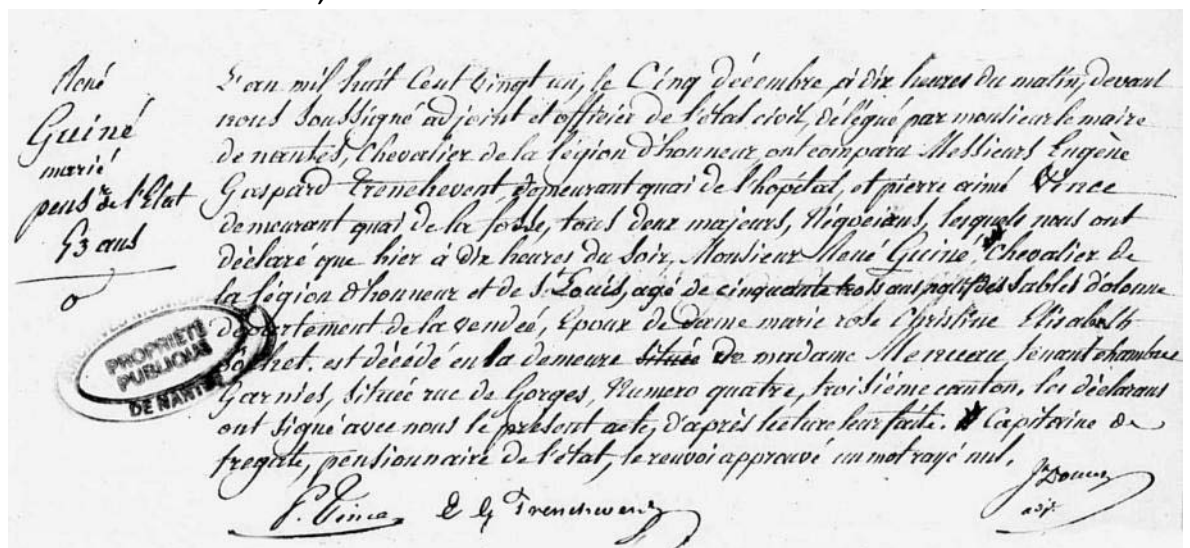 René
Guiné
marié
pens.r de l'Etat
53 ans
L'an mil huit Cent vingt un, le Cinq décembre à dix heures du matin, devant
nous Soussigné adjoint et officier de l'état civil, délégué par monsieur le maire
de nantes, Chevalier de la légion d'honneur ont comparu Messieurs Eugène
Gaspard Trenchevent, demeurant quai de l'hopital, et pierre aimé Vince
demeurant quai de la fosse, tous deux majeurs, Négocians, lesquels nous ont
déclaré que hier à dix heures du Soir, Monsieur René Guiné, Chevalier de
la légion d'honneur et de St. Louis, agé de cinquante trois ans natif des Sables d'olonne
département de la vendeé, Epoux de Dame marie rose Christine Elisabeth
est décédé en la demeure située de madame tenant chambre
Garnies, Située rue de Gorges, Numero quatre, troisième canton. les déclarans
ont Signé avec nous le présent acte, d'après lecture leur faite. # Capitaine de
fregate, pensionnaire de l'état, le renvoi approuvé un mot rayé nul.
P. Vince E G Trenchevent
adjt
PROPRIÉTÉ
PUBLIQUE
DE NANTES